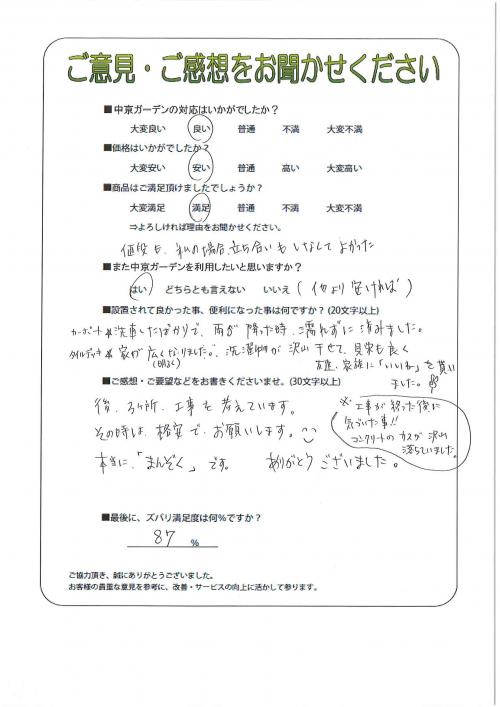 ご意見・ご感想をお聞かせください
■中京ガーデンの対応はいかがでしたか？
大変良い 良い 普通 不満 大変不満
■価格はいかがでしたか？
大変安い 安い 普通 高い 大変高い
■商品はご満足頂けましたでしょうか？
大変満足 満足 普通 不満 大変不満
⇒よろしければ理由をお聞かせください。
値段も、私の場合、立ち合いもしなしてよかった
■また中京ガーデンを利用したいと思いますか？
はい どちらとも言えない いいえ (他より安ければ)
■設置されて良かった事、便利になった事は何ですか？(20文字以上)
カーポート 洗車したばかりで、雨が降った時、濡れずに済みました。
タイルデッキ 家が広くなりました。洗濯物が沢山干せて、見栄も良く
(明るく)
家族に「いいね」を貰い
ました。
■ご感想・ご要望などをお書きくださいませ。(30文字以上)
後、3ヶ所、工事も考えています。
その時は、格安で、お願いします。
本当に、「まんぞく」です。 ありがとうございました。
※工事が終った後に
気づいた事!!
コンクリートのカスが沢山
落ちていました。
■最後に、ズバリ満足度は何%ですか？
87 %
ご協力頂き、誠にありがとうございました。
お客様の貴重な意見を参考に、改善・サービスの向上に活かして参ります。